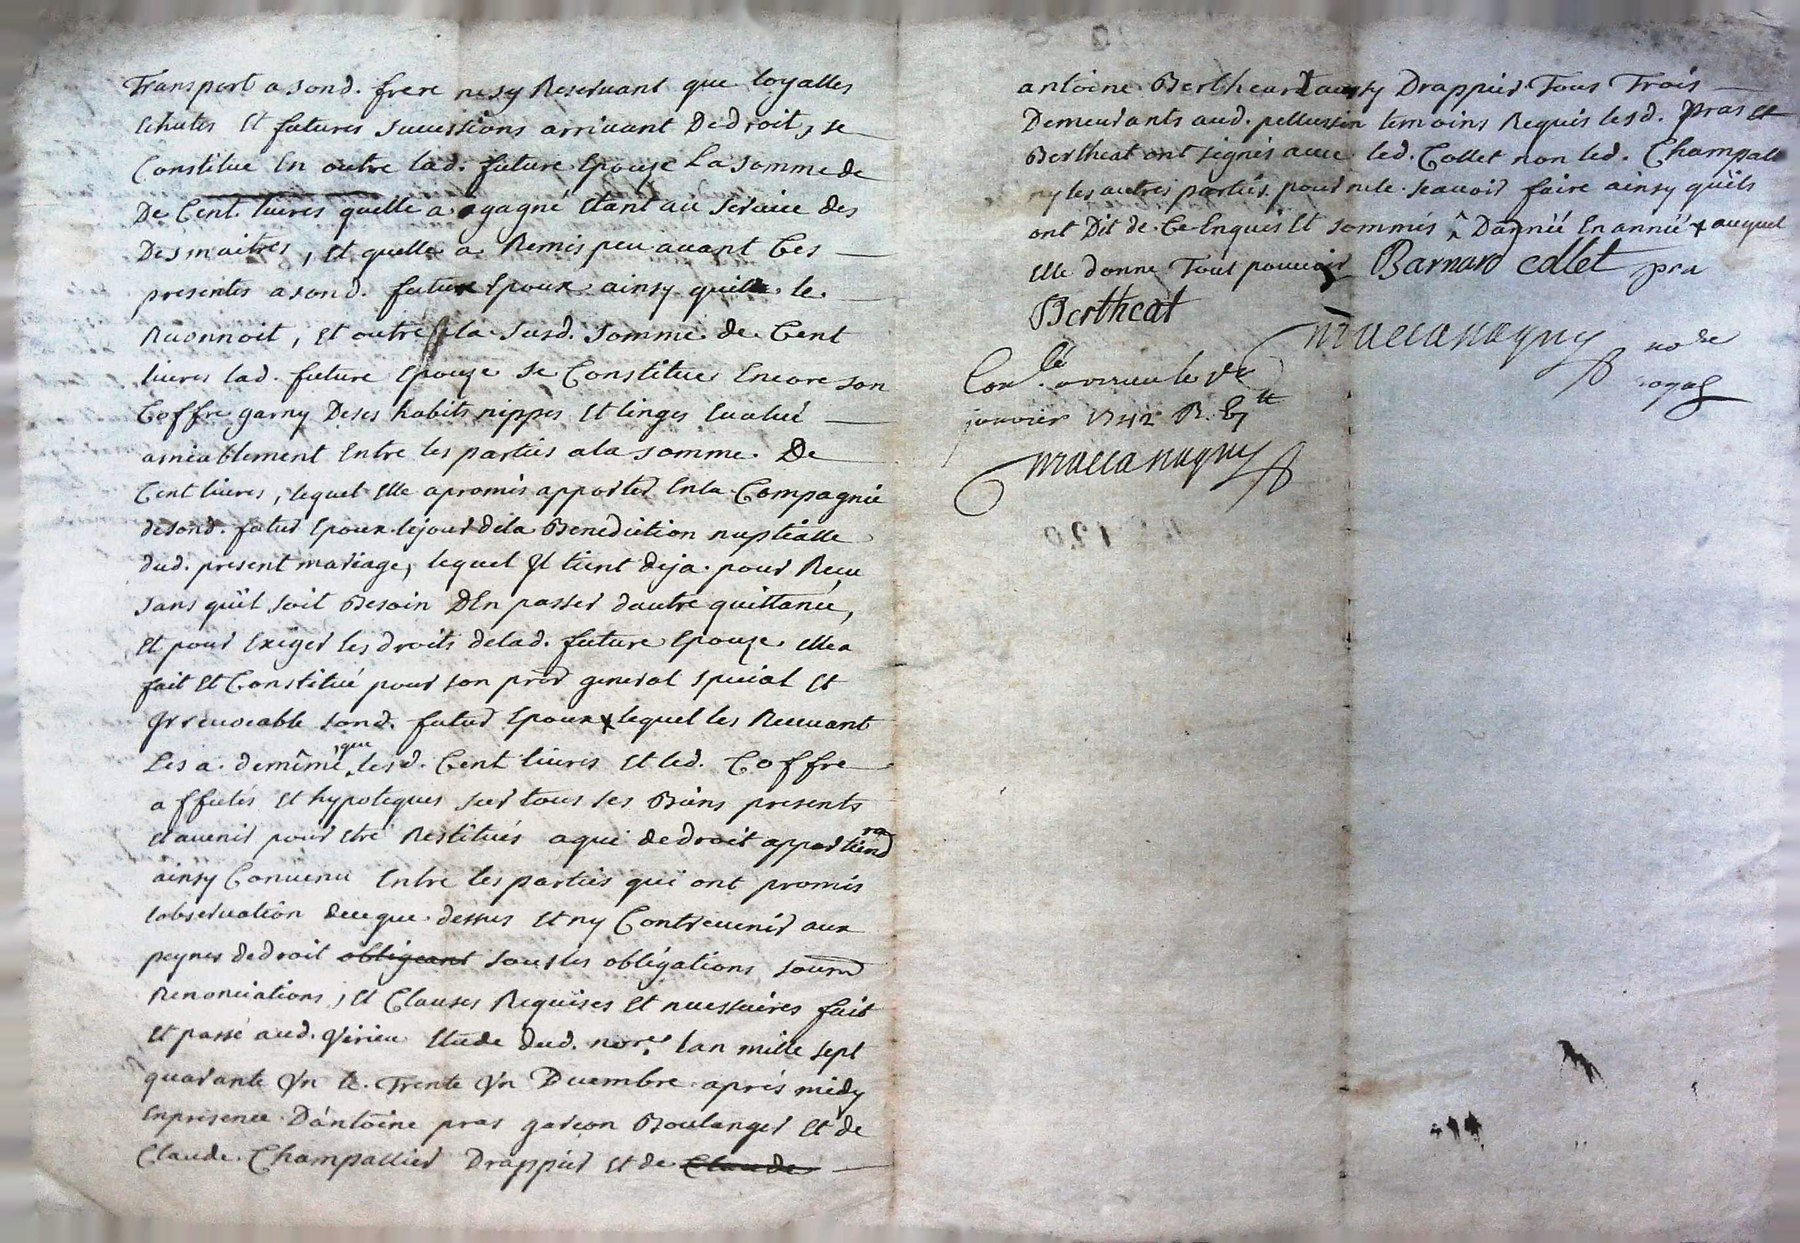 Transport a sond. frere nesy Reservant que loyalles
Echutes Et futures successions arrivant De droit, se
Constitue En outre lad. future Epouze La somme de
De Cent livres quelle a gagné Etant au Service des
Des maitres, Et quelle a Remis peu avant Ces
presentes a sond. futur Epoux ainsy quil le
Reconnoit, Et outre la susd. somme de Cent
livres lad. future Epouze se Constitue Encore son
Coffre garny De ses habits nippes Et linges Evalué
amiablement Entre les parties a la somme De
Cent livres, lequel Elle a promis apporter En la Compagnie
de sond. futur Epoux le jour de la Benediction nuptialle
dud. present mariage, lequel Il tient deja pour Recu
sans quil soit Besoin DEn passer dautre quittance,
Et pour Exiger les droits de lad. future Epouze Elle a
fait Et Constitué pour son procr general special Et
Irrevocable sond. futur Epoux x lequel les Recevant
Les a de même que lesd. Cent livres Et led. Coffre
affectés Et hypoteques sur tous ses Biens presents
Et avenir pour Etre Restitués a qui de droit appartiendra
ainsy Convenu Entre les parties qui ont promis
lobservation de ce que dessus Et ny Contrevenir aux
peynes de droit obligeant sous les obligations soumn
Renonciations, Et Clauses Requises Et necessaires fait
Et passé aud. Virieu Etude dud. nore. lan mille sept
quarante Un le Trente Un Decembre aprés midy
En presence D'antoine pras garcon Boulanger Et de
Claude Champallier Drappier Et de Claude
antoine Bertheat aussy Drappier Tous Trois
Demeurants aud. pellussin temoins Requis lesd. Pras Et
Bertheat ont signés avec led. Collet non led. Champalle
ny les autres parties pour ne le scavoir faire ainsy quils
ont Dit de Ce Enquis Et sommés Dannée En année x auquel
Elle donne Tout pouvoir Barnard collet pra
Bertheat
Maccanagny
no re
royal
Conlé a virieu le
janvier 1742 R.
Maccanagny